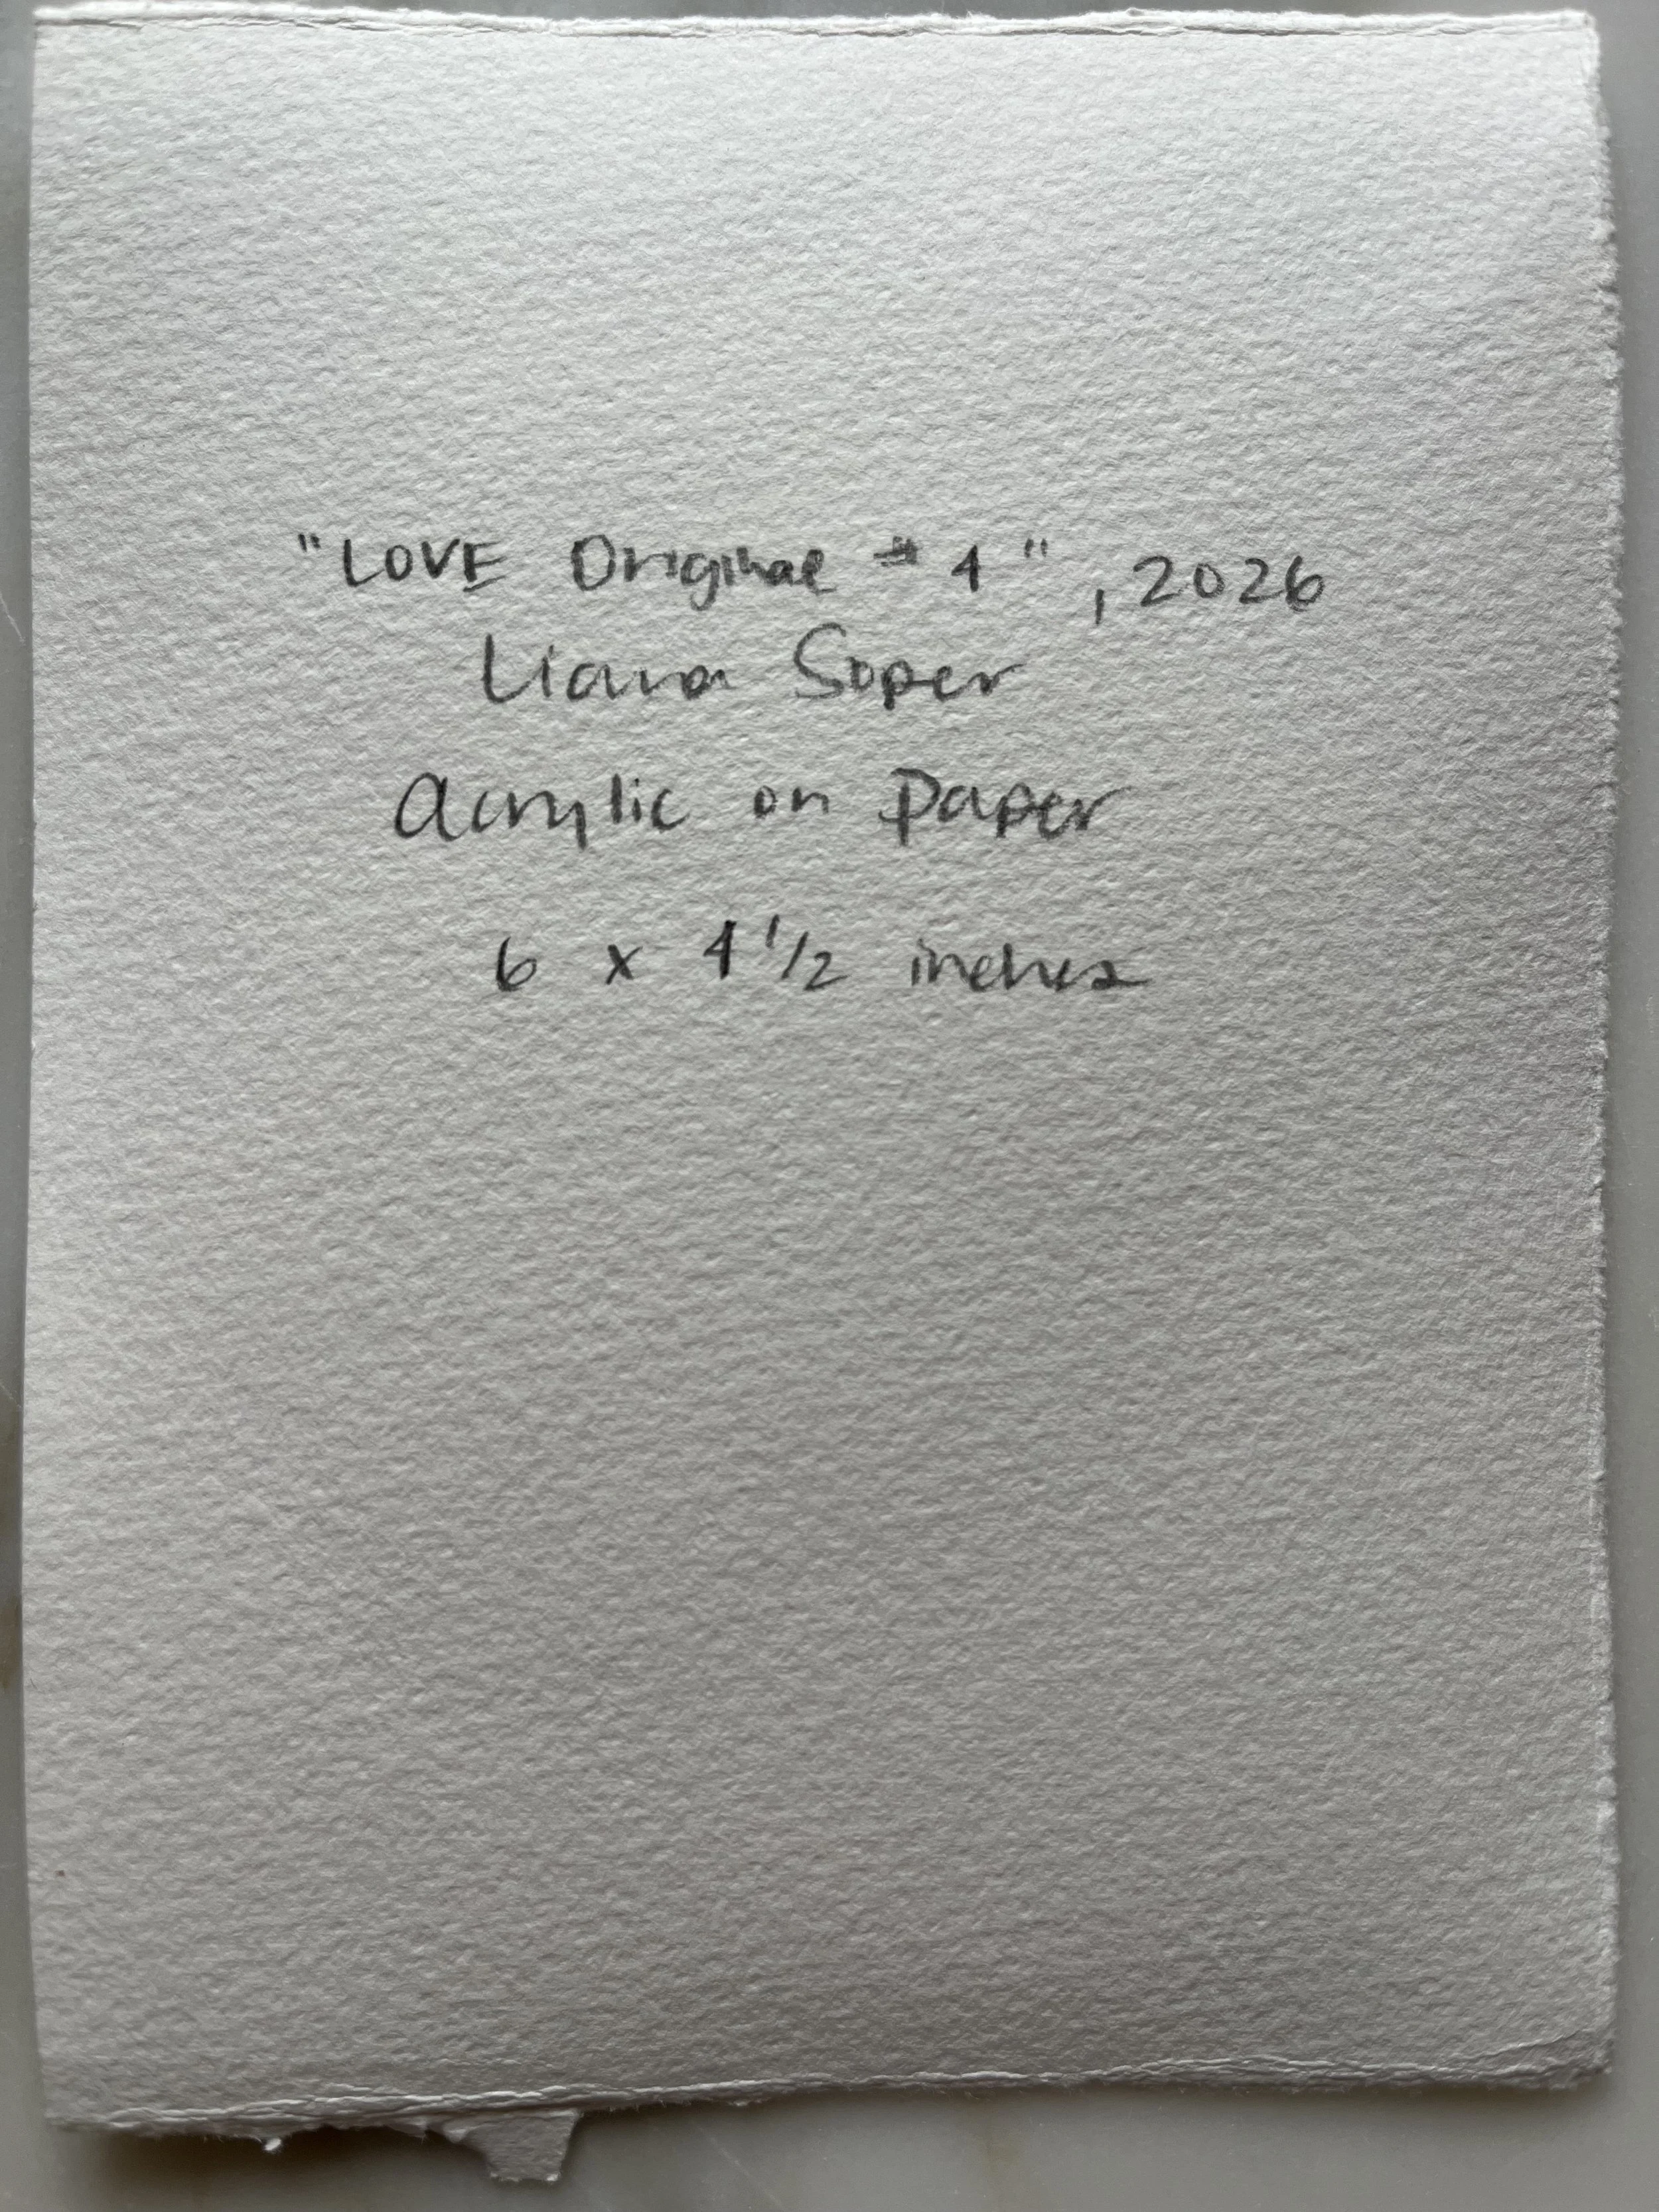 "LOVE Original #4", 2026
Liana Soper
Acrylic on Paper
6 x 4 1/2 inches